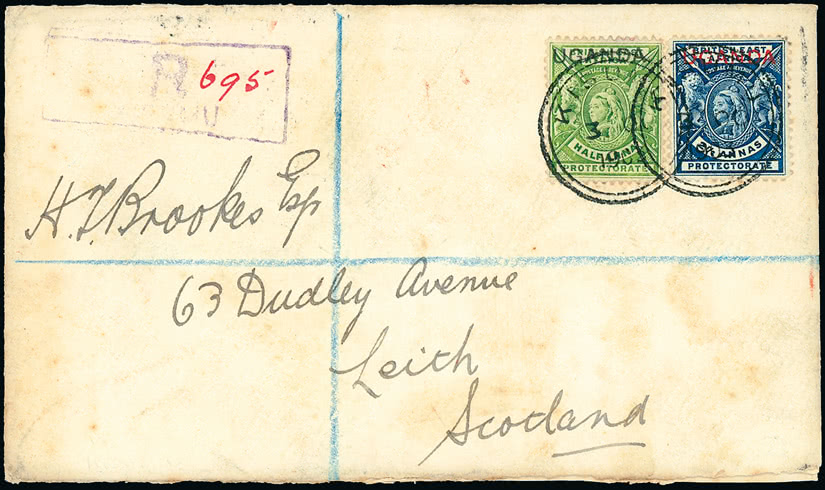 R 695
UGANDA
POSTAGE & REVENUE
HALF ANNA
PROTECTORATE
BRITISH EAST
UGANDA
2½ ANNAS
PROTECTORATE
H. T. Brookes Esq
63 Dudley Avenue
Leith
Scotland